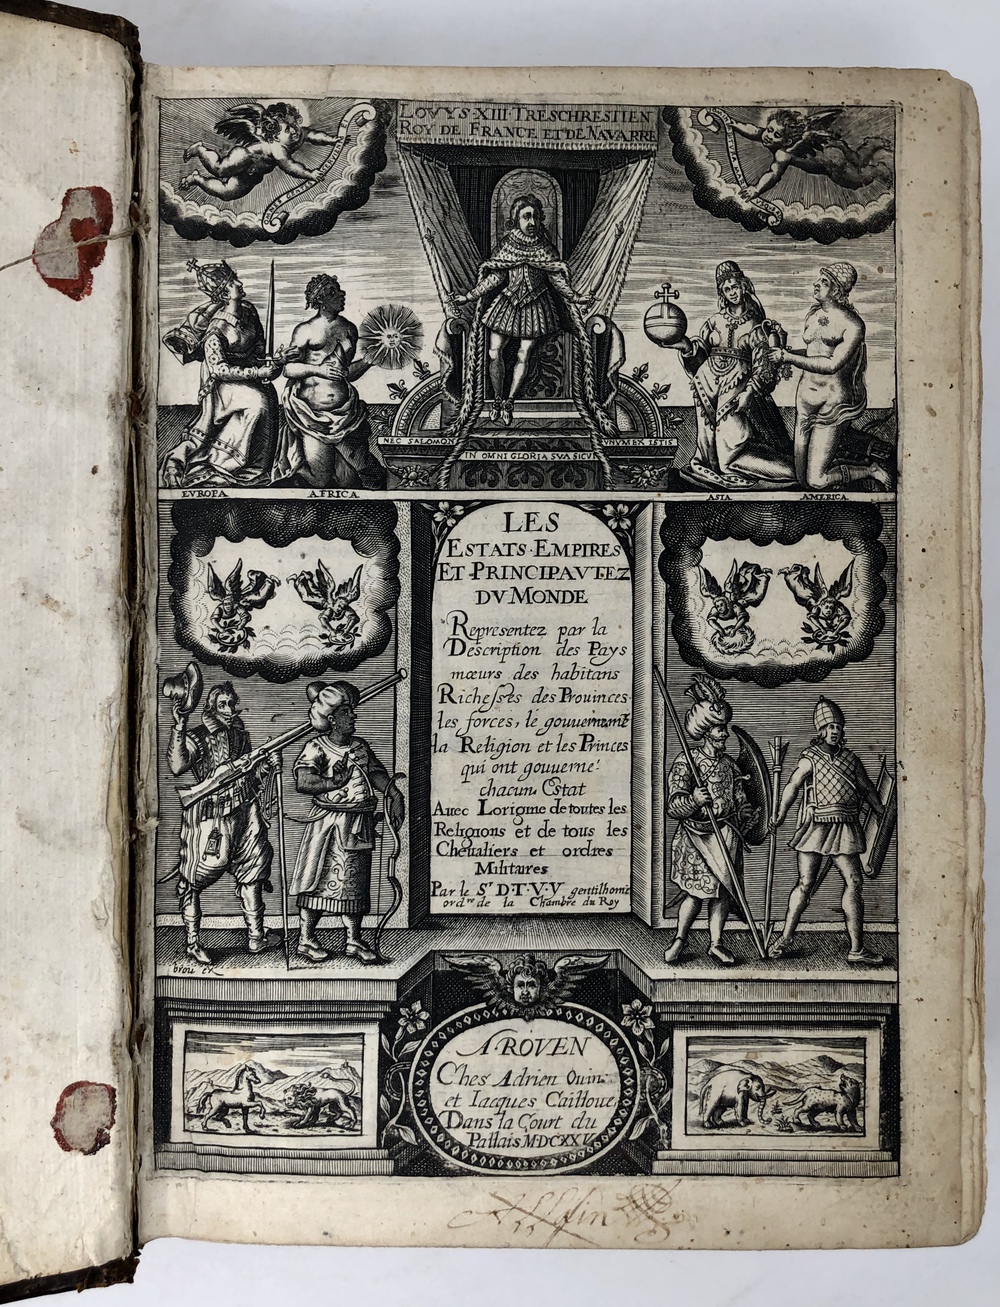 LOVYS·XIII·TRESCHRESTIEN
ROY DE FRANCE ET DE NAVARRE
NEC SALOMON
IN OMNI GLORIA SVA SICV
VNVM EX ISTIS
EVROPA
AFRICA
ASIA
AMERICA
LES
ESTATS·EMPIRES
ET·PRINCIPAVTEZ
DV MONDE
Representez par la
Description des Pays
mœurs des habitans
Richesses des Prouinces
les forces, le gouuernemẽt
la Religion et les Princes
qui ont gouuerne
chacun Estat
Auec Lorigine de toutes les
Religions et de tous les
Cheualiers et ordres
Militaires
Par le Sr D·T·V·Y gentilhome
ordre de la Chambre du Roy
A ROVEN
Ches Adrien Ouin
et Iacques Cailloue
Dans la Court du
Pallais MDCXXV